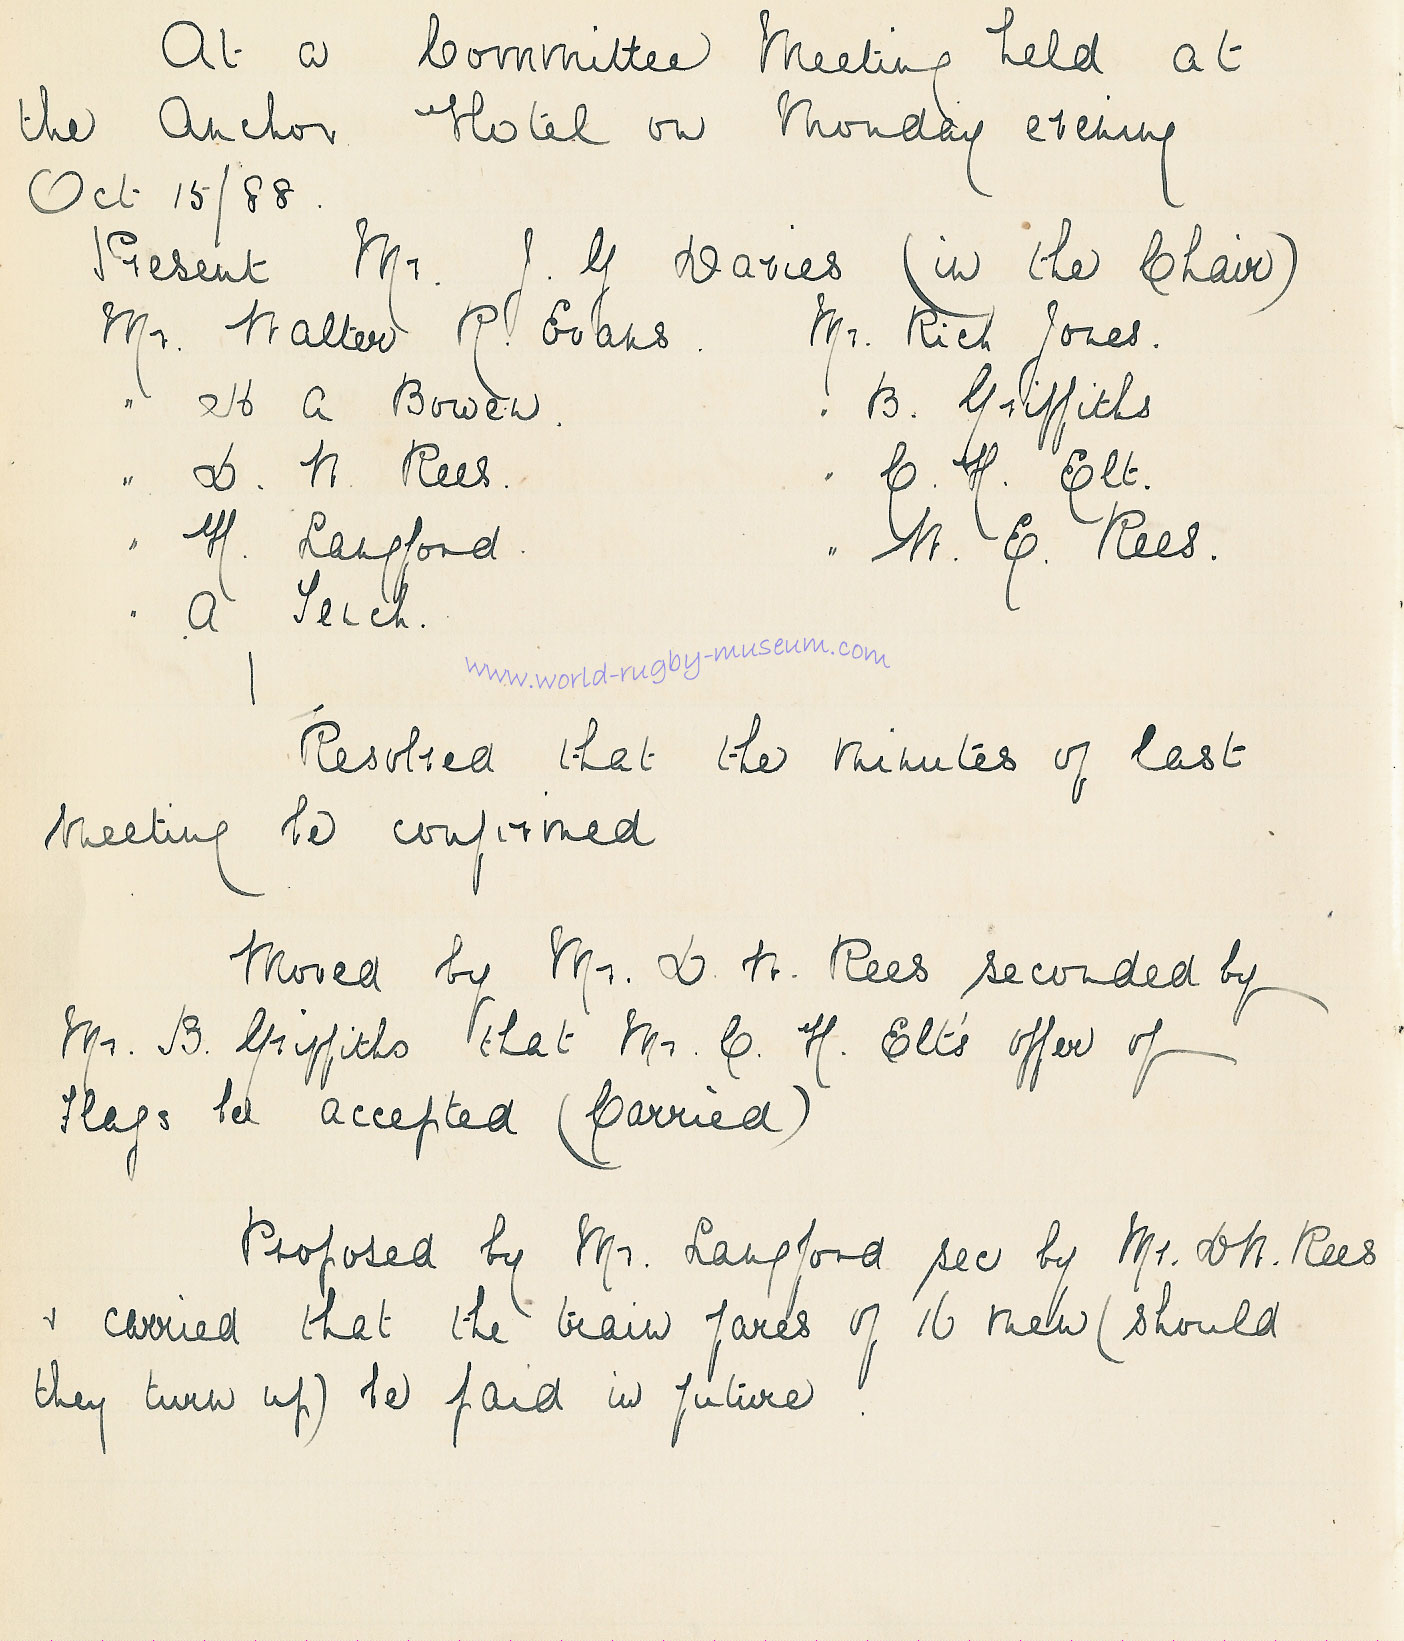 At a Committee Meeting held at
the Anchor Hotel on Monday evening
Oct 15/88.
Present Mr. J. G Davies (in the Chair)
Mr. Walter R. Evans. Mr. Rich Jones.
" A Bowen. " B. Griffiths
" D. W. Rees. " C. H. Elt.
" H. Langford. " W. E. Rees.
" A Tench.
www.world-rugby-museum.com
Resolved that the minutes of last
meeting be confirmed
Moved by Mr. D. W. Rees seconded by
Mr. B. Griffiths that Mr. C. H. Elt's offer of
Flags be accepted (Carried)
Proposed by Mr. Langford sec by Mr. D W. Rees
& carried that the train fares of 16 men (should
they turn up) be paid in future.